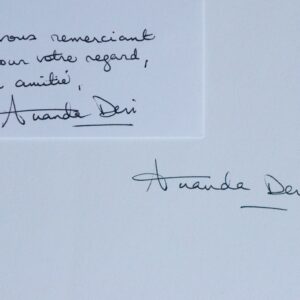 vous remerciant
pour votre regard,
amitié,
Ananda Devi
Ananda Dev